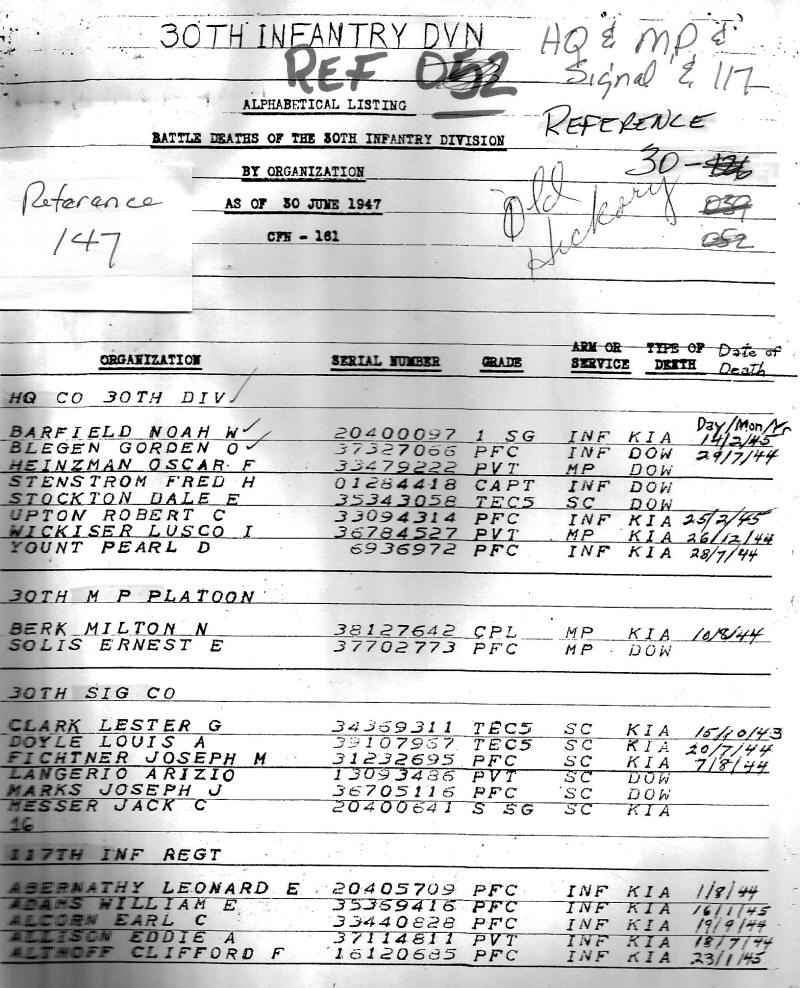 30TH INFANTRY DVN
HQ & MP &
Signal & 117
REF 052
ALPHABETICAL LISTING
REFERENCE
BATTLE DEATHS OF THE 30TH INFANTRY DIVISION
BY ORGANIZATION
30-
Reference
147
AS OF 30 JUNE 1947
Old
Hickory
039
052
CFN - 161
ORGANIZATION SERIAL NUMBER GRADE ARM OR SERVICE TYPE OF DEATH Date of Death
HQ CO 30TH DIV ✓
Day/Mon/Yr
BARFIELD NOAH W ✓ 20400097 1 SG INF KIA 14/2/45
BLEGEN GORDEN O ✓ 37327066 PFC INF DOW 29/7/44
HEINZMAN OSCAR F 33479222 PVT MP DOW
STENSTROM FRED H 01284418 CAPT INF DOW
STOCKTON DALE E 35343058 TEC5 SC DOW
UPTON ROBERT C 33094314 PFC INF KIA 25/2/45
WICKISER LUSCO I 36784527 PVT MP KIA 26/12/44
YOUNT PEARL D 6936972 PFC INF KIA 28/7/44
30TH M P PLATOON
BERK MILTON N 38127642 CPL MP KIA 10/8/44
SOLIS ERNEST E 37702773 PFC MP DOW
30TH SIG CO
CLARK LESTER G 34369311 TEC5 SC KIA 15/10/43
DOYLE LOUIS A 39107967 TEC5 SC KIA 20/7/44
FICHTNER JOSEPH M 31232695 PFC SC KIA 7/8/44
LANGERIO ARIZIO 13093486 PVT SC DOW
MARKS JOSEPH J 36705116 PFC SC DOW
MESSER JACK C 20400641 S SG SC KIA
16
117TH INF REGT
ABERNATHY LEONARD E 20405709 PFC INF KIA 1/8/44
ADAMS WILLIAM E 35369416 PFC INF KIA 16/1/45
ALCORN EARL C 33440828 PFC INF KIA 19/9/44
ALLISON EDDIE A 37114811 PVT INF KIA 18/7/44
ALTHOFF CLIFFORD F 16120685 PFC INF KIA 23/1/45